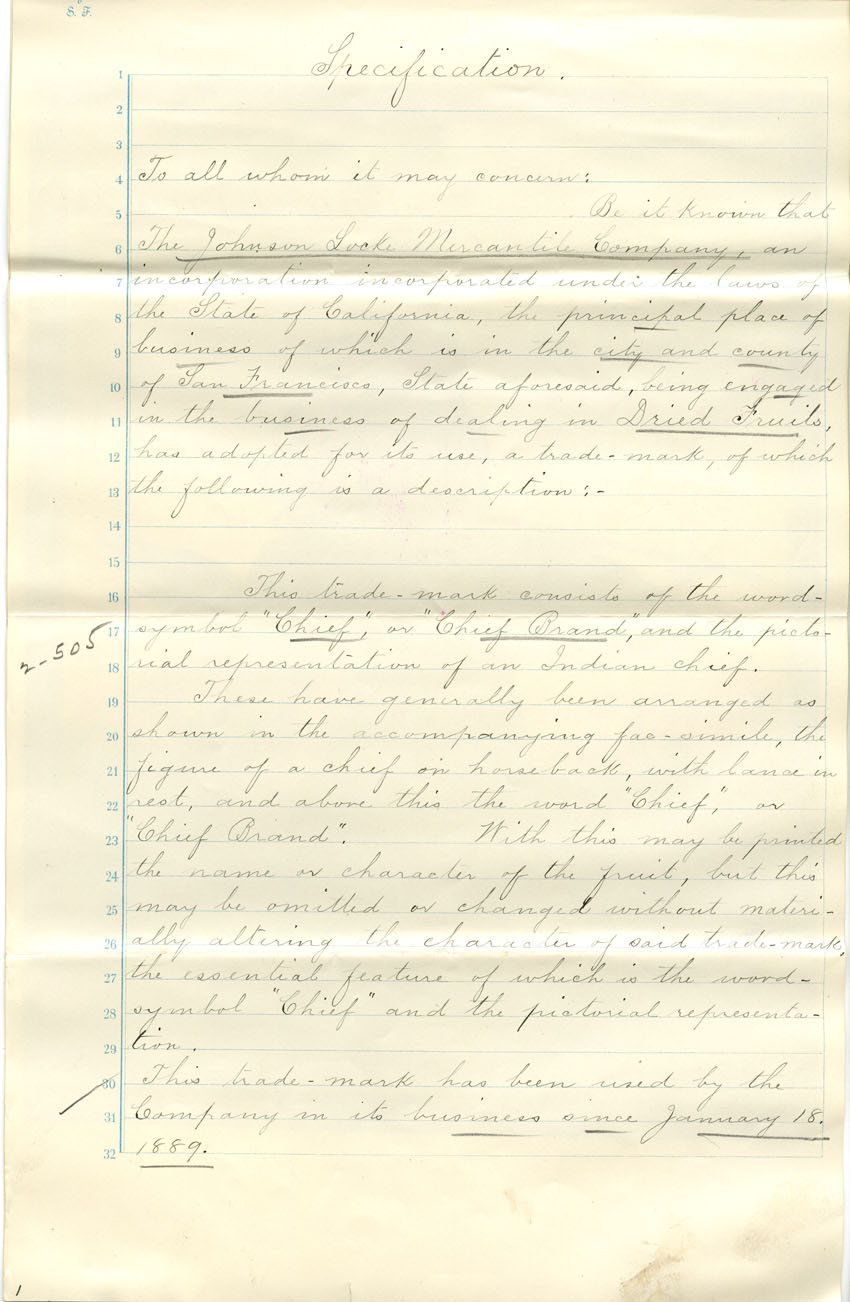 S. F.
Specification.
1
2
3
To all whom it may concern:
4
Be it known that
5
The Johnson Locke Mercantile Company, an
6
incorporation incorporated under the laws of
7
the State of California, the principal place of
8
business of which is in the city and county
9
of San Francisco, State aforesaid, being engaged
10
in the business of dealing in Dried Fruits,
11
has adopted for its use, a trade-mark, of which
12
the following is a description:-
13
14
15
This trade-mark consists of the word-
16
symbol "Chief", or "Chief Brand", and the picto-
17
2-505
rial representation of an Indian chief.
18
These have generally been arranged as
19
shown in the accompanying fac-simile, the
20
figure of a chief on horseback, with lance in
21
rest, and above this the word "Chief", or
22
"Chief Brand". With this may be printed
23
the name or character of the fruit, but this
24
may be omitted or changed without materi-
25
ally altering the character of said trade-mark,
26
the essential feature of which is the word-
27
symbol "Chief" and the pictorial representa-
28
tion.
29
This trade-mark has been used by the
30
Company in its business since January 18.
31
1889.
32
1